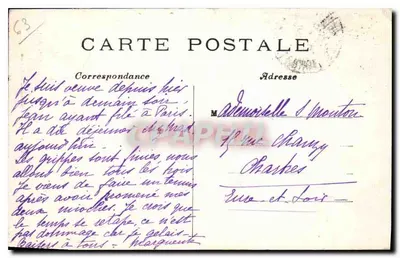 63
CARTE POSTALE
Correspondance
Adresse
Je suis veuve depuis hier
jusqu'à demain soir
Jean ayant filé à Paris.
Il a dû déjeuner
aujourd'hui.
Les grippes sont finies nous
allons bien tous les trois
Je viens de faire un tennis
après avoir promené mes
deux mioches. Je crois que
le temps se retape, ce n'est
pas dommage car je gelais.
Baisers à tous - Marguerite
Mademoiselle S. Mouton
rue Chanzy
Chartres
Eure et Loir